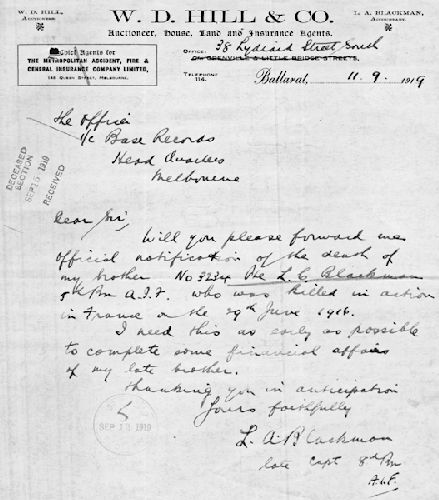 W. D. HILL,
AUCTIONEER.
W. D. HILL & CO.
L. A. BLACKMAN,
ACCOUNTANT.
Auctioneer, House, Land and Insurance Agents.
Chief Agents for
THE METROPOLITAN ACCIDENT, FIRE &
GENERAL INSURANCE COMPANY LIMITED,
QUEEN STREET, MELBOURNE.
OFFICE:
38 Lydiard Street South
GRENVILLE & LITTLE BRIDGE STREETS,
TELEPHONE
Ballarat, 11. 9. 1919
The Officer
i/c Base Records
Head Quarters
Melbourne
DECEASED
SECTION
SEP 15 1919
RECEIVED
Dear Sir,
Will you please forward me
Official notification of the death of
my brother No 3234 Pte L. C. Blackman
Bn A.I.F. who was killed in action
in France on the 29th June 1916.
I need this as early as possible
to complete some financial affairs
of my late brother.
Thanking you in anticipation
Yours faithfully
SEP 13 1919
L. A. Blackman
late Capt 8th Bn
A.I.F.